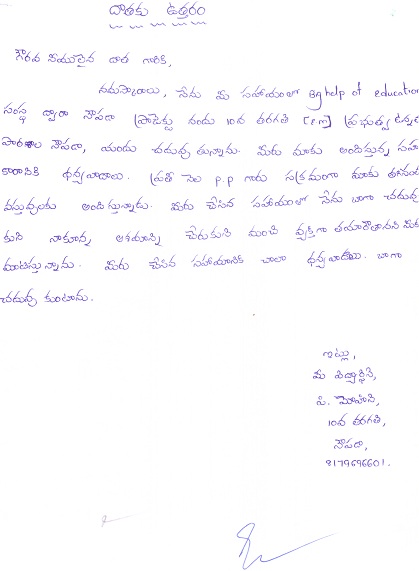 దాతకు ఉత్తరం
గౌరవనీయులైన దాత గారికి,
నమస్కారాలు, నేను మీ సహాయంలో Bg help of education
సంస్థ ద్వారా నౌపడా ప్రాజెక్టు నందు 10వ తరగతి [E.M] ప్రభుత్వ ఉన్నత
పాఠశాల నౌపడా, యందు చదువు తున్నాను. మీరు మాకు అందిస్తున్న సహ
కారానికి ధన్యవాదాలు. ప్రతీ నెల p.p గారు సక్రమంగా మాకు
వస్తువులకు అందిస్తున్నాడు. మీరు చేసిన సహాయంలో నేను బాగా చదువు
కుని నాకున్న ఆశయాన్ని చేరుకుని మంచి వ్యక్తిగా తయారౌతానని
మీరు చేసిన సహాయానికి చాలా ధన్యవాదాలు. బాగా
చదువు కుంటాను.
ఇట్లు,
మీ విద్యార్థిని,
సి. మోహిని,
10వ తరగతి,
నౌపడా,
8179696601.